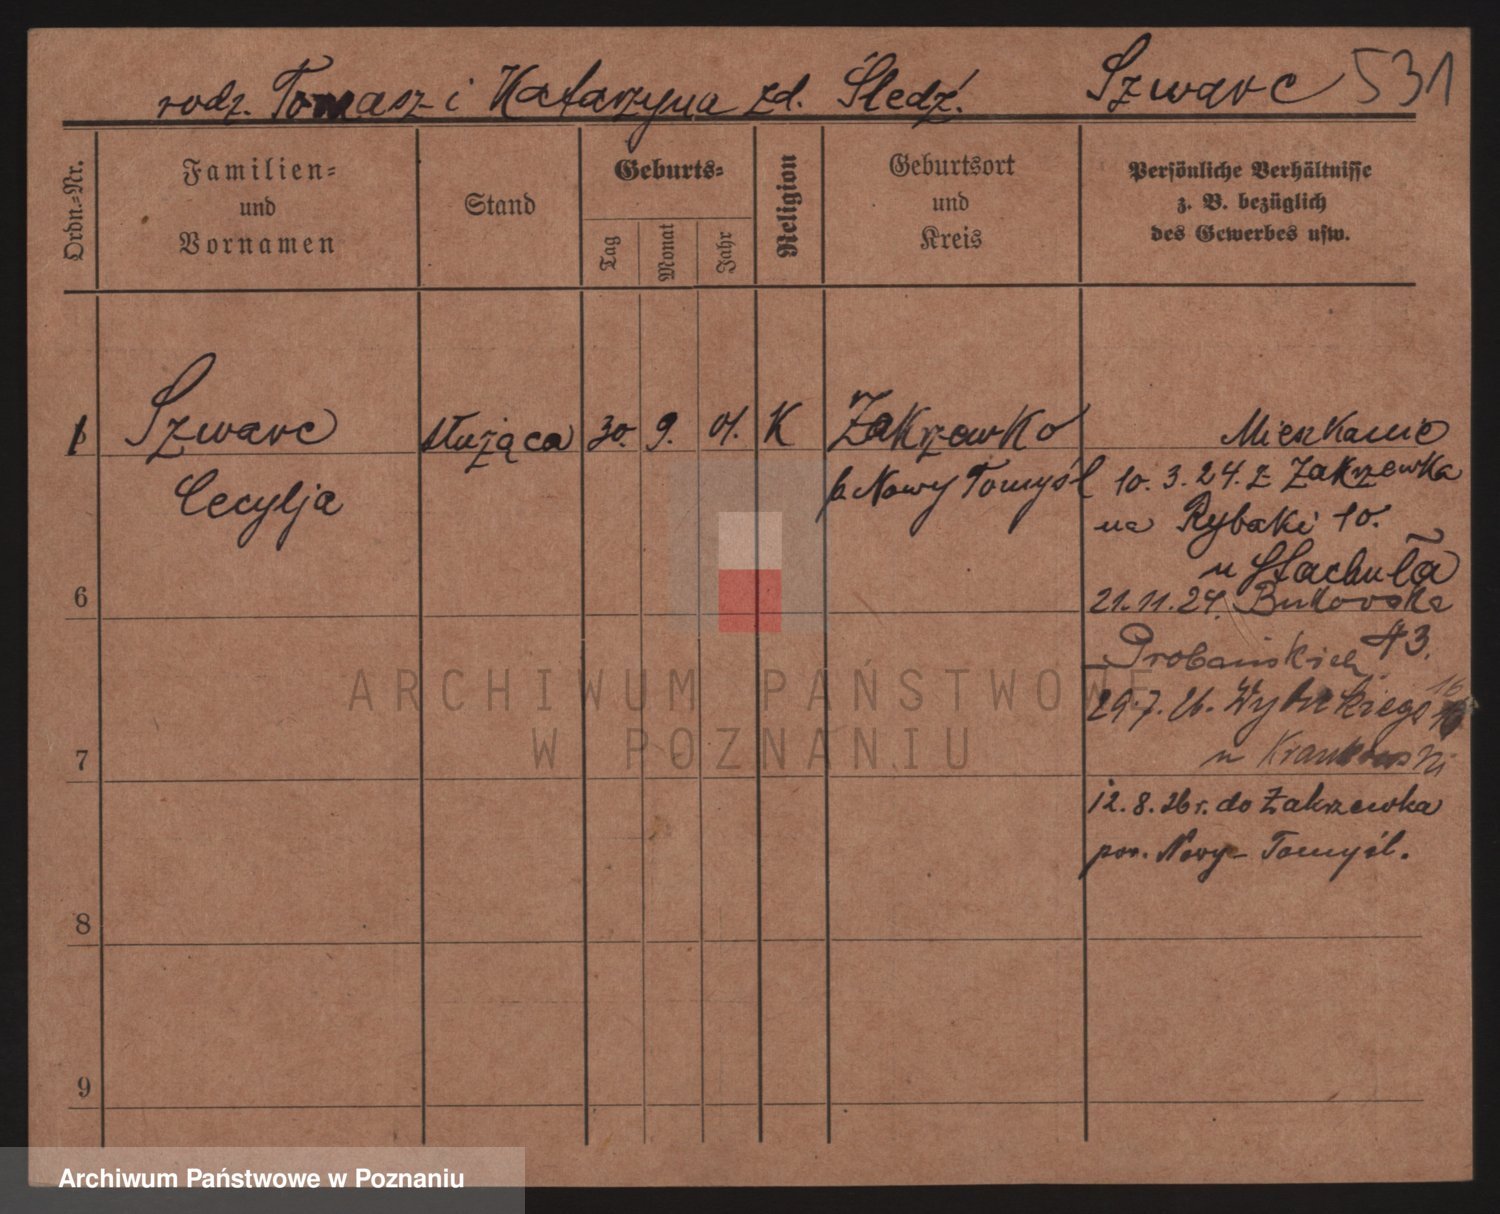 rodz. Tomasz i Katarzyna zd. Śledź. Szwarc 531
Ordn.-Nr.
Familien-
und
Vornamen
Stand
Geburts-
Tag
Monat
Jahr
Religion
Geburtsort
und
Kreis
Persönliche Verhältnisse
z. B. bezüglich
des Gewerbes usw.
1 Szwarc służąca 30. 9. 01. K Zakrzewko Mieszkanie
Cecylja Nowy Tomyśl 10. 3. 24. z Zakrzewka
na Rybaki 10.
u Stachuła
6 21.11.24. Bukowska
43.
29.7.26. 16
u
7
12.8.26 r. do Zakrzewka
pow. Nowy-Tomyśl.
8
9
ARCHIWUM PAŃSTWOWE
W POZNANIU
Archiwum Państwowe w Poznaniu